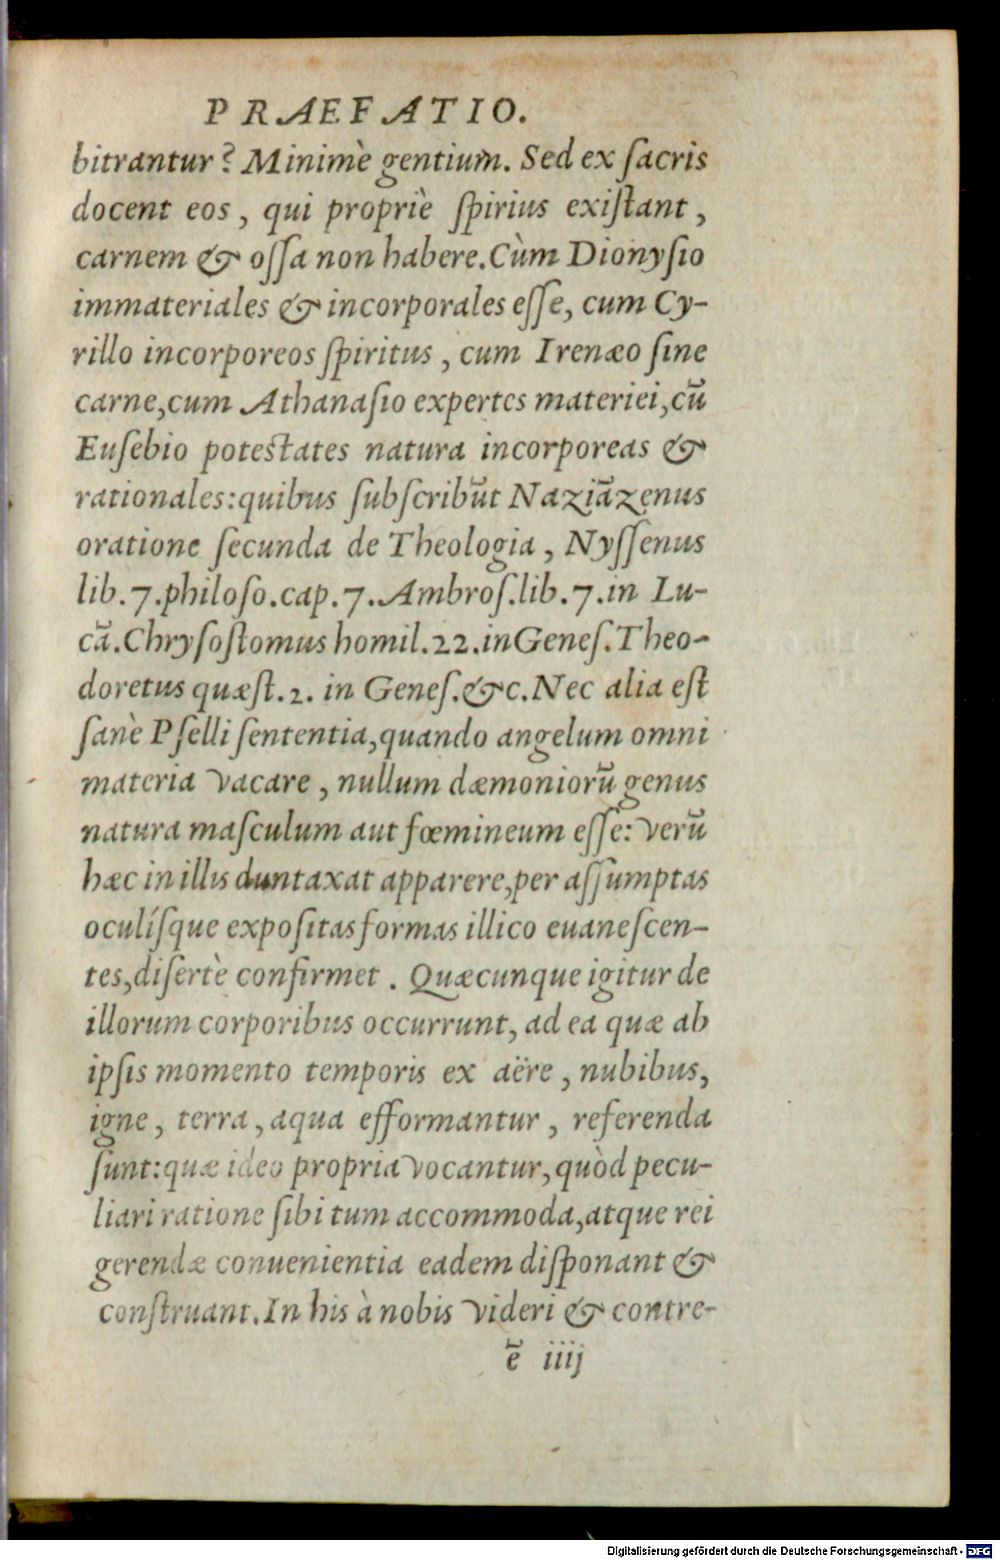 PRAEFATIO.
bitrantur? Minimè gentium. Sed ex ſacris
docent eos, qui propriè ſpirius exiſtant,
carnem & oſſa non habere. Cùm Dionyſio
immateriales & incorporales eſſe, cum Cy-
rillo incorporeos ſpiritus, cum Irenæo ſine
carne, cum Athanaſio expertes materiei, cū
Euſebio poteſtates natura incorporeas &
rationales: quibus ſubſcribūt Naziāzenus
oratione ſecunda de Theologia, Nyſſenus
lib. 7. philoſo. cap. 7. Ambroſ. lib. 7. in Lu-
cā. Chryſoſtomus homil. 22. in Geneſ. Theo-
doretus quæſt. 2. in Geneſ. &c. Nec alia eſt
ſanè Pſelli ſententia, quando angelum omni
materia vacare, nullum dæmoniorū genus
natura maſculum aut fœmineum eſſe: verū
hæc in illis duntaxat apparere, per aſſumptas
oculíſque expoſitas formas illico euaneſcen-
tes, diſertè confirmet. Quæcunque igitur de
illorum corporibus occurrunt, ad ea quæ ab
ipſis momento temporis ex aëre, nubibus,
igne, terra, aqua efformantur, referenda
ſunt: quæ ideo propria vocantur, quòd pecu-
liari ratione ſibi tum accommoda, atque rei
gerendæ conuenientia eadem diſponant &
conſtruant. In his à nobis videri & contre-
ē iiij
Digitalisierung gefördert durch die Deutsche Forschungsgemeinschaft - DFG